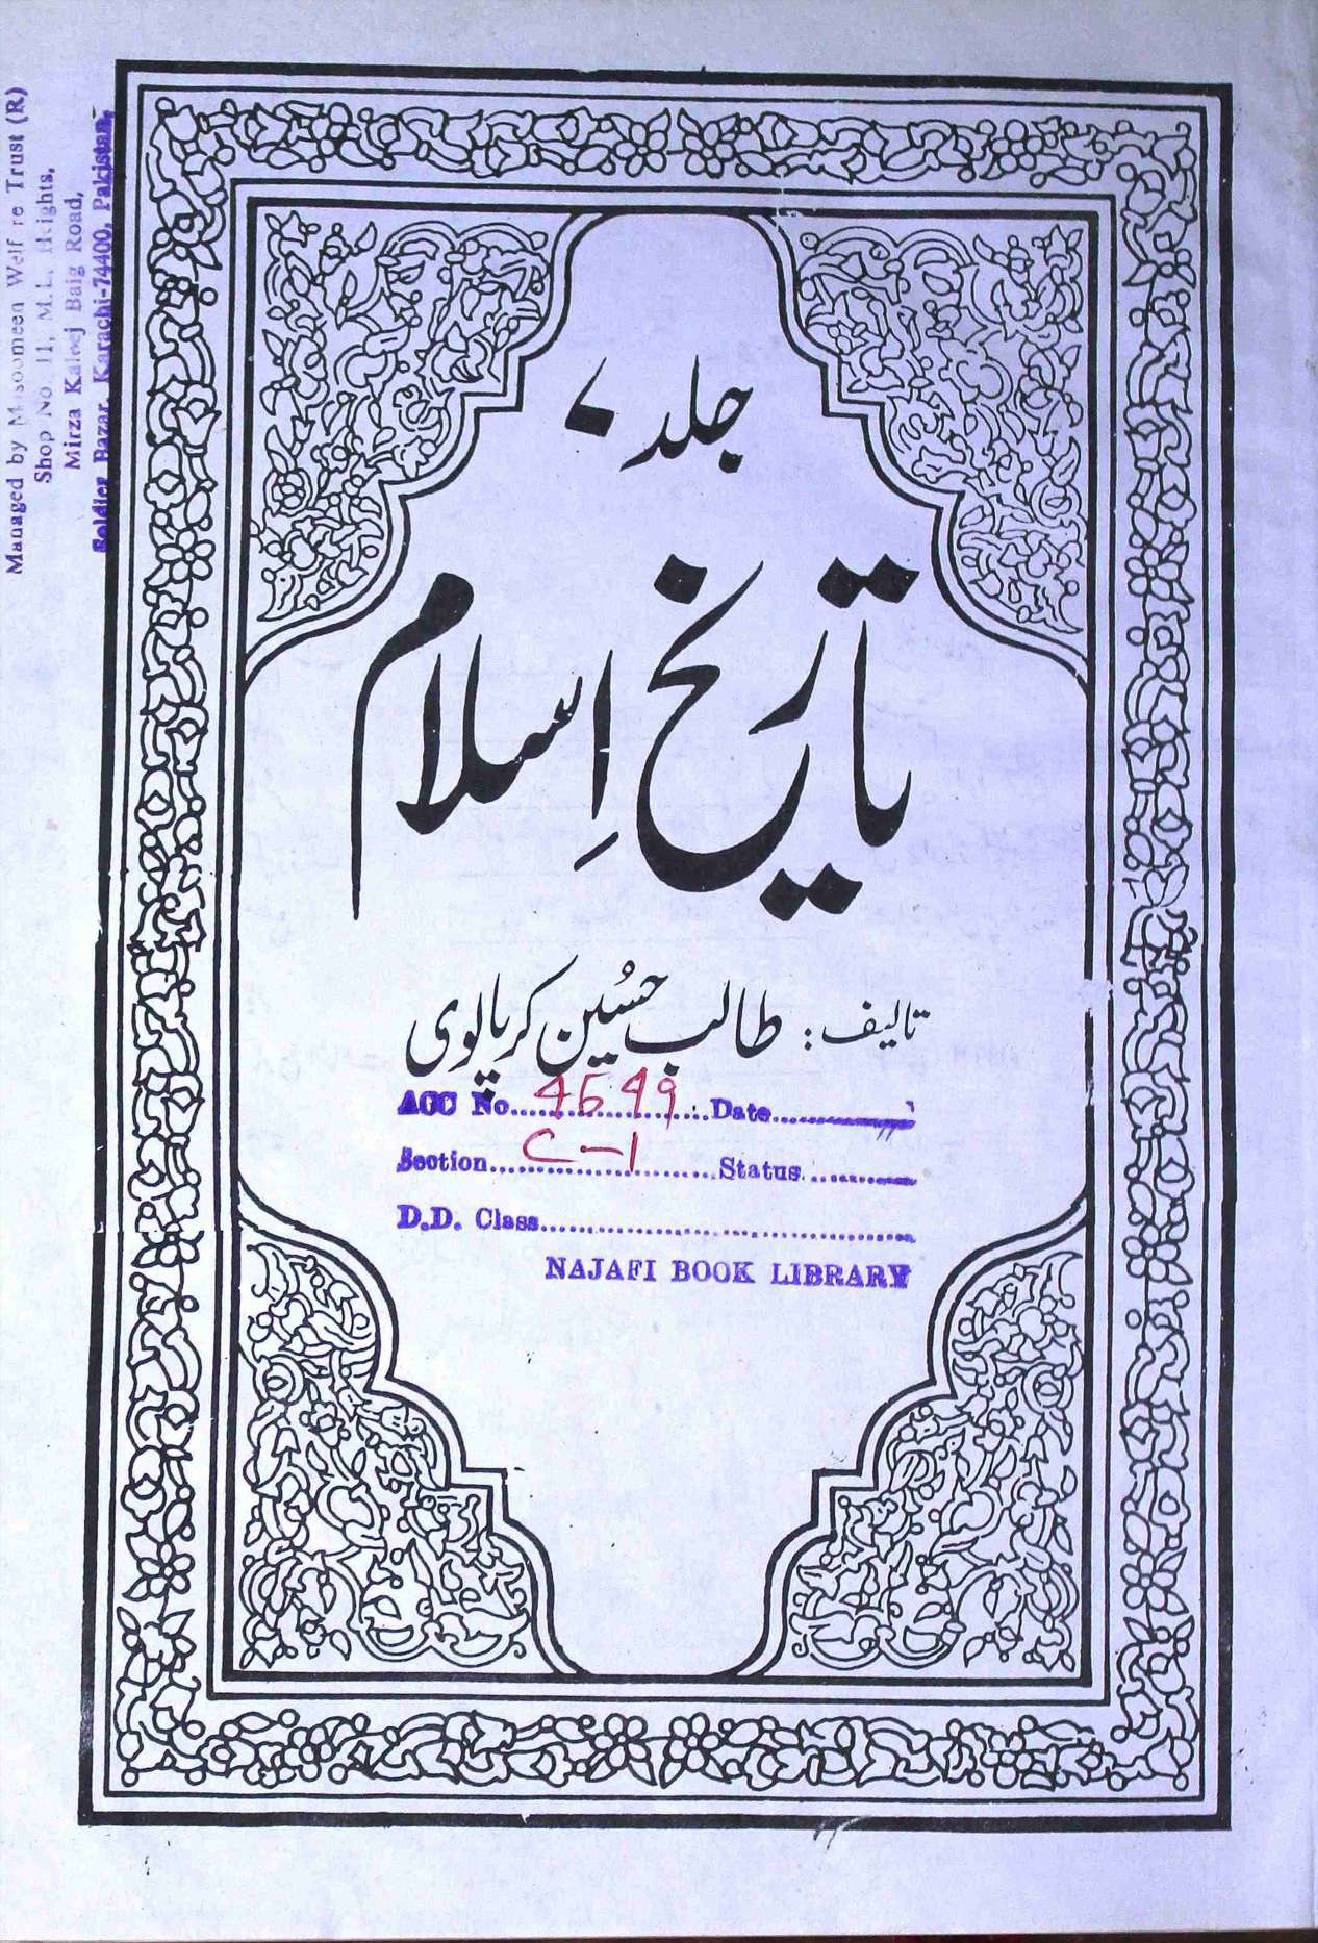 جلد ۷
تاریخ اِسلام
تالیف : طالب حُسین کرپالوی
ACC No. 4649 Date
Section C-1 Status
D.D. Class
NAJAFI BOOK LIBRARY
Managed by Masoomeen Welfare Trust (R)
Shop No. 11, M.L. Heights,
Mirza Kaleej Baig Road,
Soldier Bazar, Karachi-74400, Pakistan.